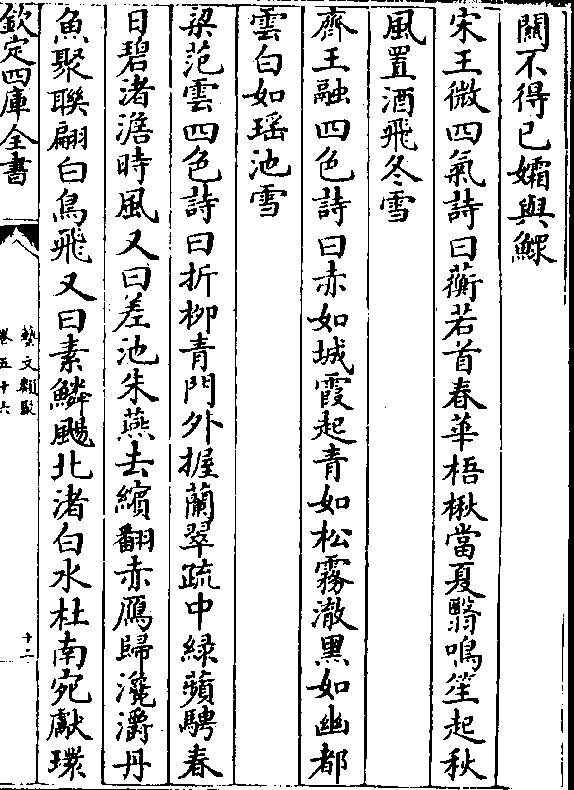 關不得已孀與鰥
宋王微四氣詩曰蘅若首春華梧楸當夏翳鳴笙起秋
風置酒飛冬雪
齊王融四色詩曰赤如城霞起青如松霧澈黑如幽都
雲白如瑶池雪
梁范雲四色詩曰折柳青門外握蘭翠疏中緑蘋騁春
日碧渚澹時風又曰差池朱燕去繽翻赤鴈歸瀺灂丹
魚聚聯翩白鳥飛又曰素鱗颺北渚白水杜南宛獻環
欽定四庫全書
藝文類聚
卷五十六
十二